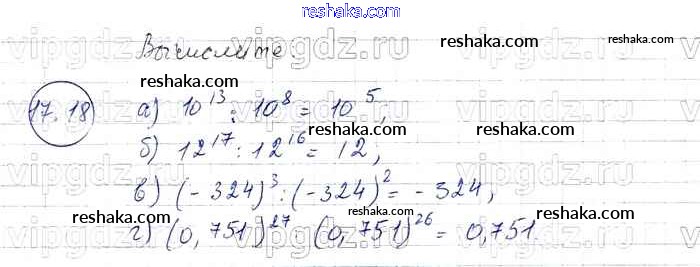 reshaka.com
Вычислите
vipgdz.ru vipgdz.ru vipgdz.ru
reshaka.com reshaka.com
17.18 а) 10^13 : 10^8 = 10^5,
б) 12^17 : 12^16 = 12,
reshaka.com reshaka.com
в) (-324)^3 : (-324)^2 = -324,
reshaka.com reshaka.com reshaka.com
г) (0,751)^27 (0,751)^26 = 0,751.
reshaka.com